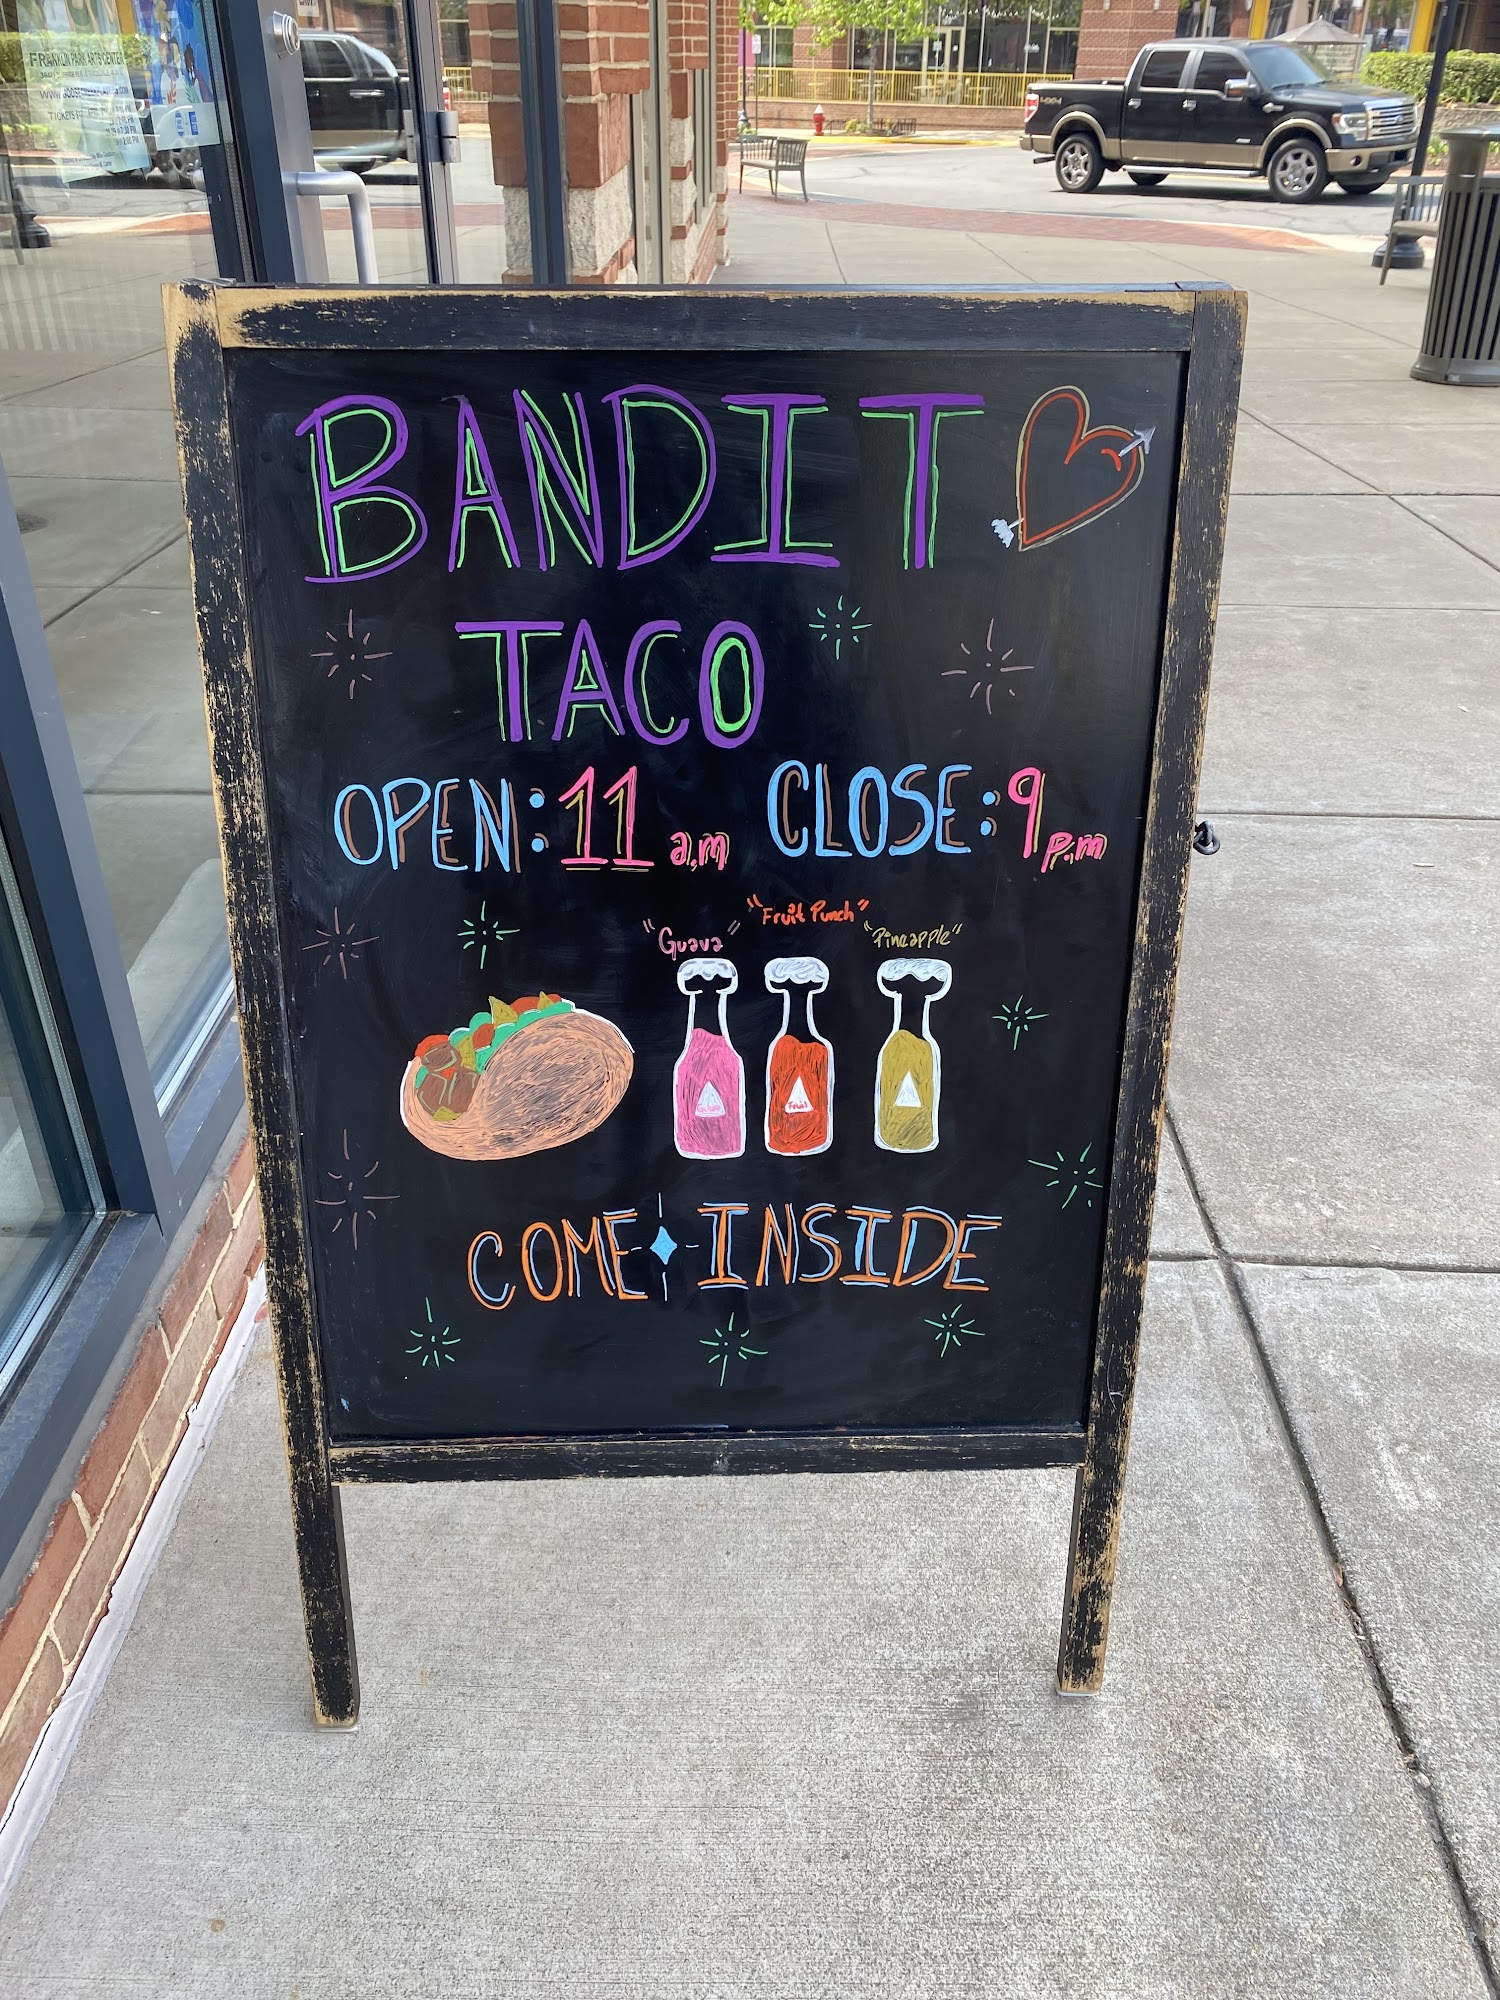 FRANKLIN PARK ARTS CENTER
BANDIT
TACO
OPEN: 11 a.m CLOSE: 9 p.m
"Guava" "Fruit Punch" "Pineapple"
Fruit
COME INSIDE